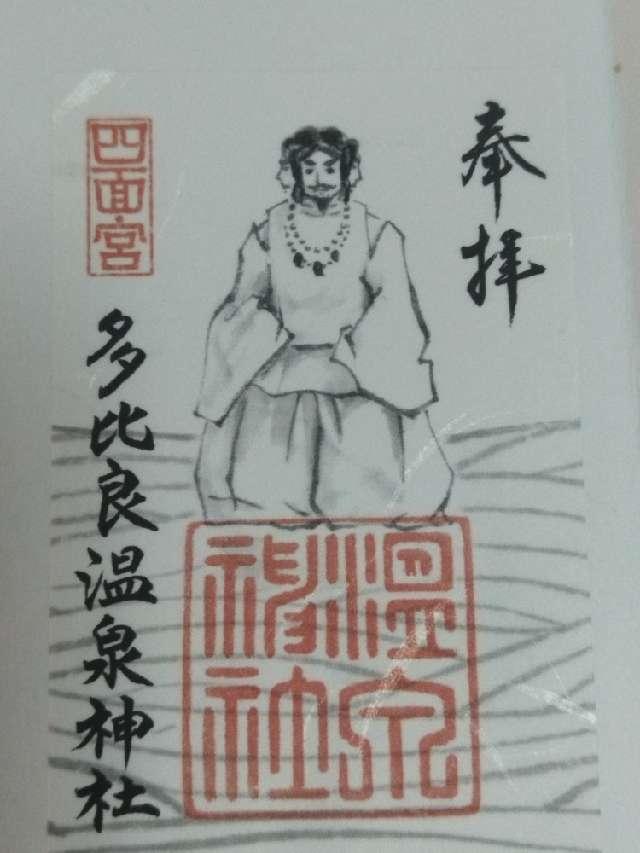 奉拝
温泉神社
四面宮
多比良温泉神社